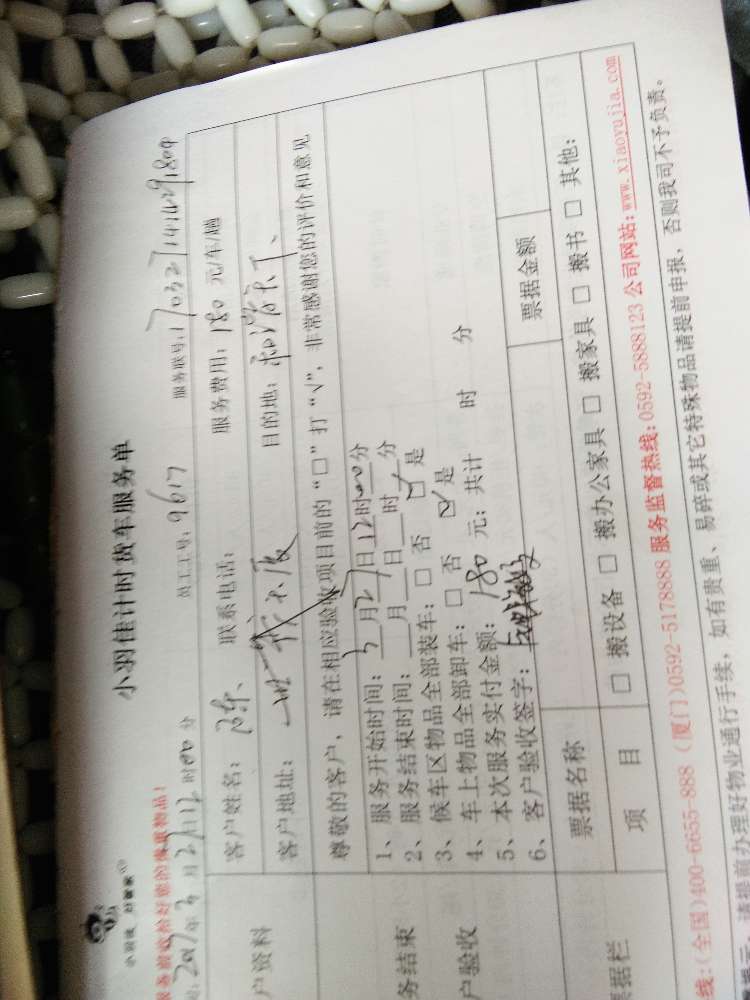 小羽佳计时货车服务单
小羽佳 好管家
服务前收拾好您的贵重物品!
2017年3月27日12时00分 员工工号: 9617 服务联号: 1703271414291804
客户资料
客户姓名: 陈、 联系电话: 服务费用: 180 元/车/趟
客户地址: 目的地:
尊敬的客户, 请在相应验收项目前的“□”打“√”, 非常感谢您的评价和意见
1、服务开始时间: 3月27日12时00分
2、服务结束时间: 月 日 时 分
3、候车区物品全部装车: □ 否 ☑ 是
4、车上物品全部卸车: □ 否 ☑ 是
5、本次服务实付金额: 180 元; 共计 时 分
6、客户验收签字:
务结束
户验收
票据名称 票据金额
据栏
项 目 □ 搬设备 □ 搬办公家具 □ 搬家具 □ 搬书 □ 其他:
线:(全国)400-6655-888 (厦门)0592-5178888 服务监督热线:0592-5888123 公司网站:www.xiaoyujia.com
提示: 请提前办理好物业通行手续, 如有贵重、易碎或其它特殊物品请提前申报, 否则我司不予负责。